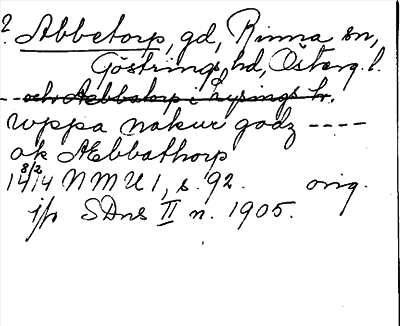 ? Abbetorp, gd, Rinna sn,
Göstrings hd, Österg. l.
--- och Aebbatorp i Lysings hr.
uppa nakur godz ----
ok AEbbathorp
14 8/2 14 NMU 1, s. 92. orig.
jfr SDns II n. 1905.